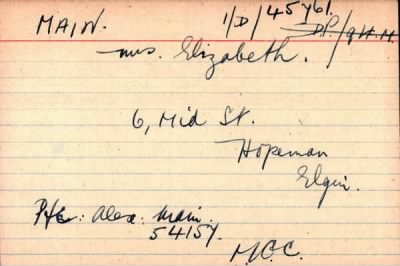 MAIN. 1/D/45761.
Mrs. Elizabeth. D.P./9.H.M.
6, Mid St.
Hopeman
Elgin.
Pte: Alex: Main.
54157.
M.G.C.